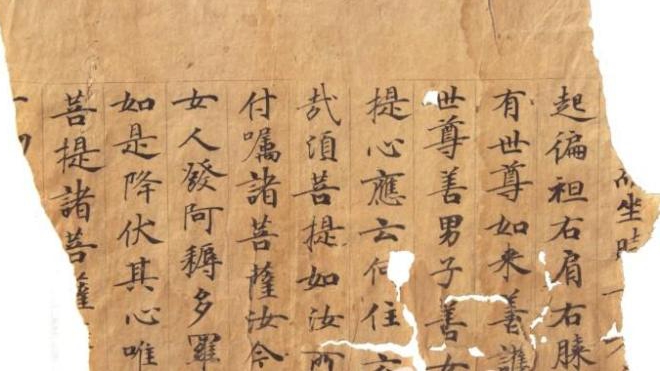 坐時
起偏袒右肩右膝
有世尊如来善護
世尊善男子善女
提心應云何住云
哉須菩提如汝所
付囑諸菩薩汝今
女人發阿耨多羅
如是降伏其心唯
菩提諸菩薩